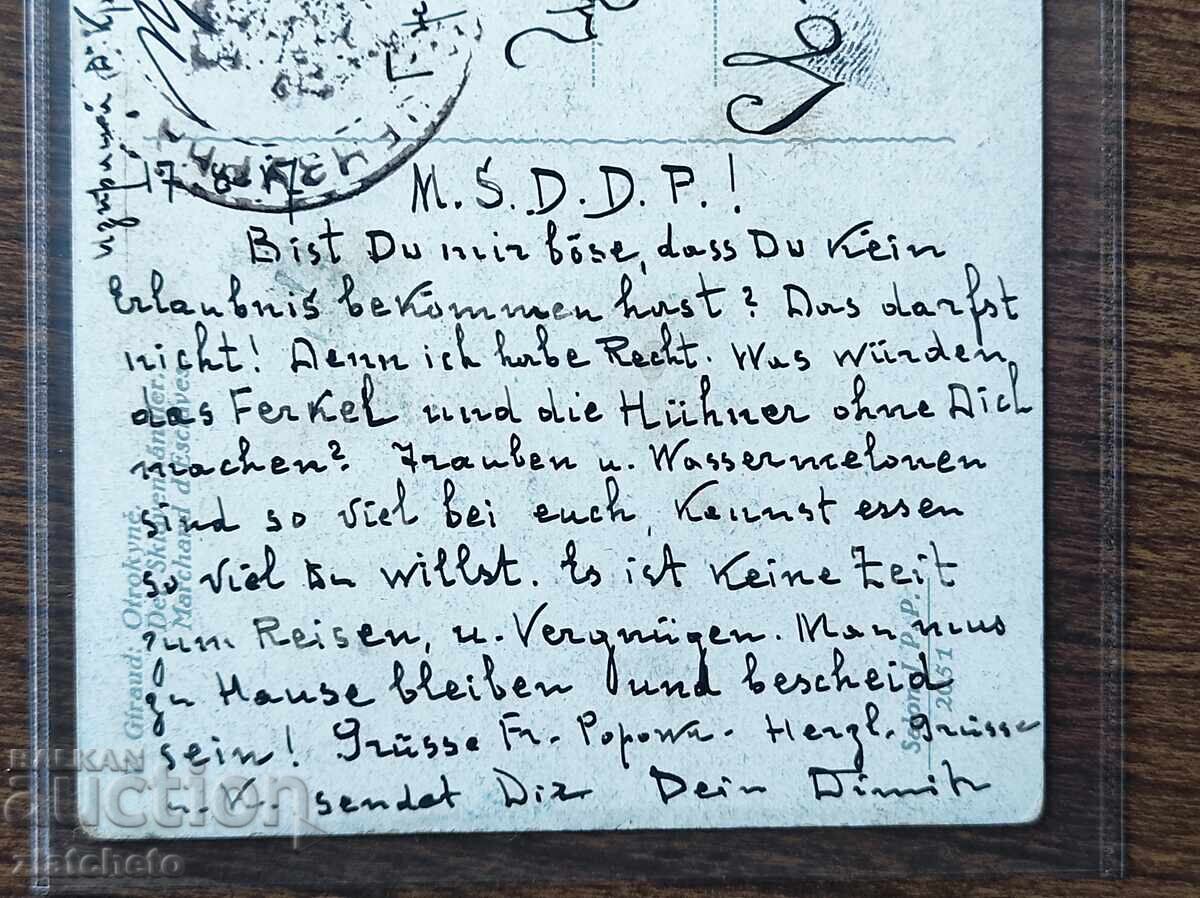 M.S.D.D.P.!
Bist Du mir böse, dass Du Kein
Erlaubnis bekommen hast? Das darfst
nicht! Denn ich habe Recht. Was würden
das Ferkel und die Hühner ohne Dich
machen? Trauben u. Wassermelonen
sind so viel bei euch, Kannst essen
so viel Du willst. Es ist Keine Zeit
zum Reisen, u. Vergnügen. Man mus
zu Hause bleiben und bescheid
sein! Grüsse Fr. Popowa. Herzl. Grüsse
u. K. sendet Dir Dein Dimitr
Giraud: Otrokyně.
Der Sklavenhändler.
Marchand d'Esclaves.
2051
BALKAN
auction
zlatcheto